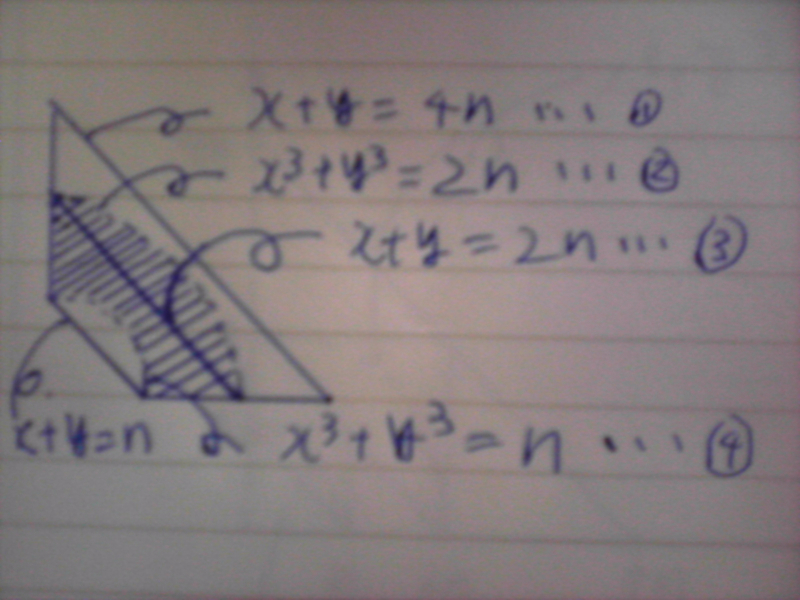 x+y=4n … ①
x³+y³=2n … ②
x+y=2n … ③
x+y=n
x³+y³=n … ④